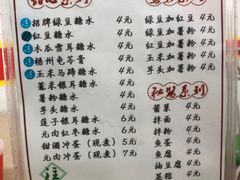 招牌绿豆糖水 4元
红豆糖水 4元
木瓜雪耳糖水 4元
梧州龟苓膏 4元
玉米马蹄糖水 4元
薏米银耳糖水 4元
薯粉糖水 4元
芋头糖水 4元
莲子银耳糖水 6元
元肉红枣糖水 6元
甜酒冲蛋(现煮) 5元
元肉冲蛋(现煮) 7元
绿豆加红豆 4元
绿豆加薯粉 4元
红豆加薯粉 4元
玉米加薯粉 4元
芋头加薯粉 4元
系列
酱菜 4元
拌面 4元
拌粉 4元
鱼蛋 4元
鱼腐 4元
油豆腐 4元
蒸粽 4元